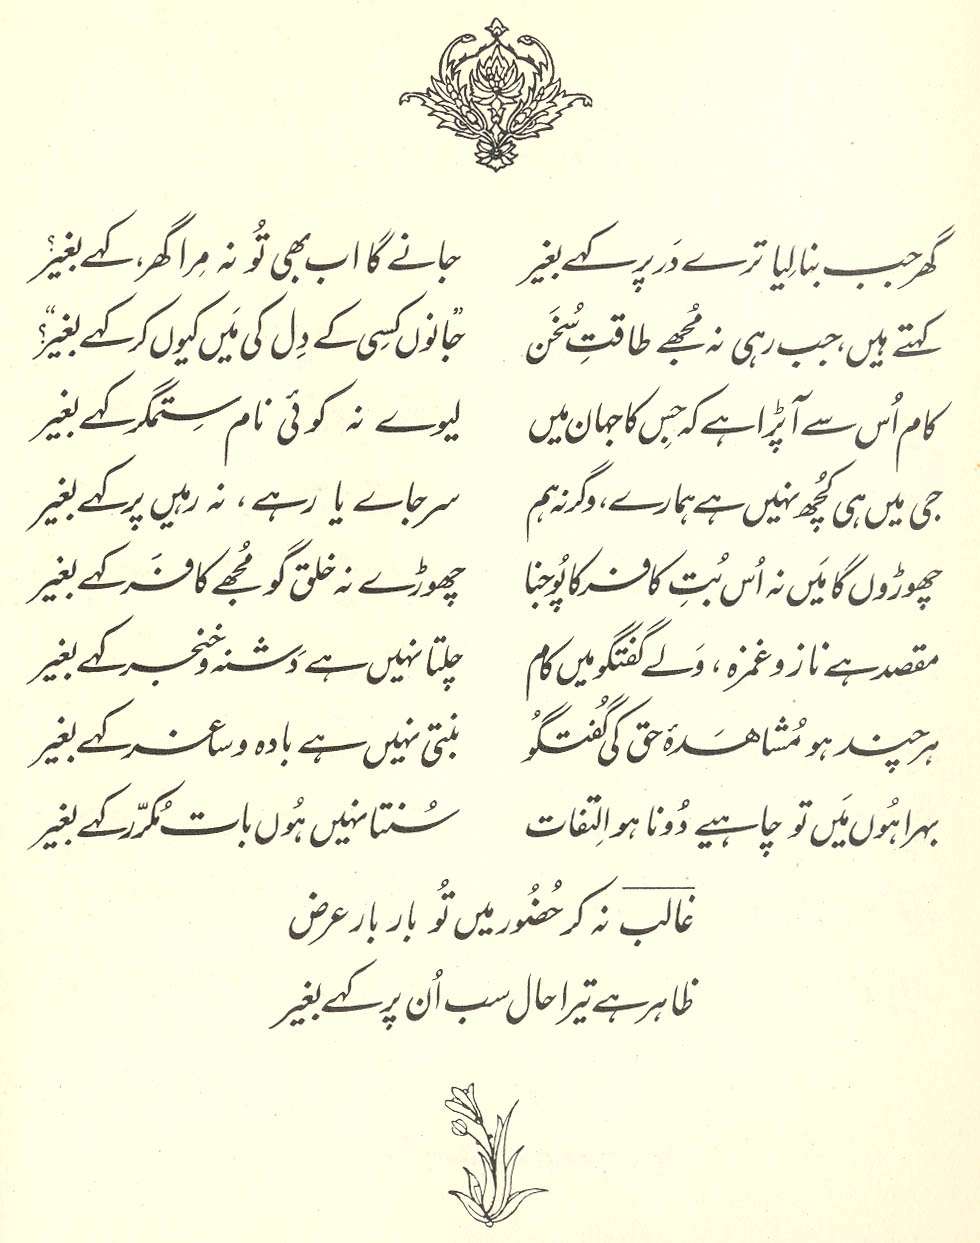 گھر جب بنا لِیا ترے دَر پر کہے بغیر جانے گا اب بھی تُو نہ مِرا گھر، کہے بغیر؟
کہتے ہیں، جب رہی نہ مُجھے طاقتِ سُخَن ”جانوں کسِی کے دِل کی مَیں کیوں کر کہے بغیر“؟
کام اُس سے آ پڑا ہے کہ جِس کا جہان میں لیوے نہ کوئی نام ستِمگر کہے بغیر
جی میں ہی کُچھ نہیں ہے ہمارے، وگرنہ ہم سر جاے یا رہے، نہ رہیں پر کہے بغیر
چھوڑوں گا مَیں نہ اُس بُتِ کافر کا پُوجنا چھوڑے نہ خلق گو مُجھے کافَر کہے بغیر
مقصد ہے ناز و غمزہ، وَلے گفتگو میں کام چلتا نہیں ہے دَشنہ و خنجر کہے بغیر
ہر چند ہو مُشاھَدۂ حق کی گُفتگُو بنتی نہیں ہے بادہ و ساغر کہے بغیر
بہرا ہُوں مَیں تو چاہیے دُونا ہو اِلتفات سُنتا نہیں ہُوں بات مُکرّر کہے بغیر
غالب نہ کر حضُور میں تُو بار بار عرض
ظاہر ہے تیرا حال سب اُن پر کہے بغیر